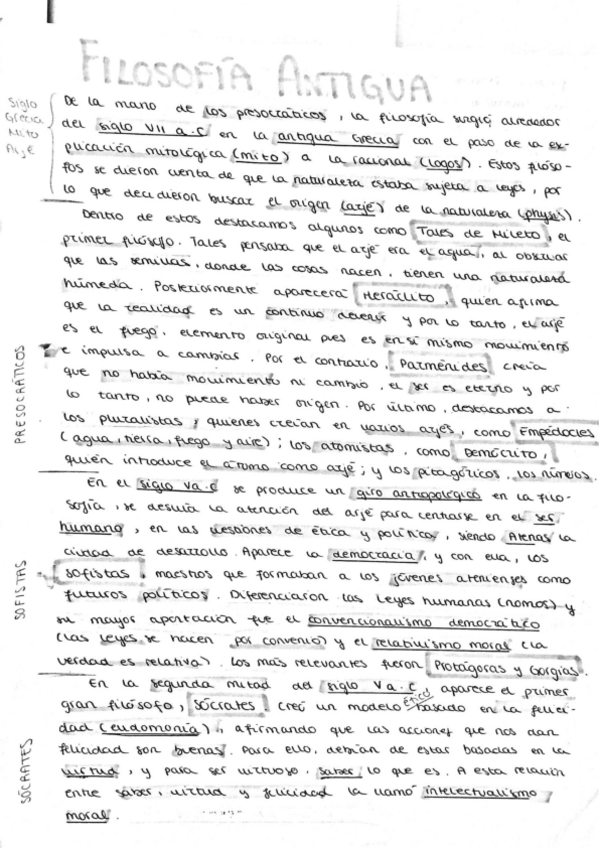 FILOSOFÍA ANTIGUA
Siglo
Grecia
Mito
Arjé
De la mano de los presocráticos, la filosofía surgió alrededor
del siglo VII a.C en la antigua Grecia con el paso de la ex-
plicación mitológica (mito) a la racional (logos). Estos filóso-
fos se dieron cuenta de que la naturaleza estaba sujeta a leyes, por
lo que decidieron buscar el origen (arjé) de la naturaleza (physis).
Dentro de estos destacamos algunos como Tales de Mileto, el
primer filósofo. Tales pensaba que el arjé era el agua, al observar
que las semillas, donde las cosas nacen, tienen una naturaleza
húmeda. Posteriormente aparecerá Heráclito, quien afirma
que la realidad es un continuo devenir y por lo tanto, el arjé
es el fuego, elemento original pues es en sí mismo movimiento
e impulsa a cambiar. Por el contrario, Parménides creía
que no había movimiento ni cambio, el ser es eterno y por
lo tanto, no puede haber origen. Por último, destacamos a
los pluralistas, quienes creían en varios arjés, como Empédocles
(agua, tierra, fuego y aire); los atomistas, como Demócrito,
quién introduce el átomo como arjé; y los pitagóricos, los números.
PRESOCRÁTICOS
En el siglo V a.C se produce un giro antropológico en la filo-
sofía, se desvía la atención del arjé para centrarse en el ser
humano, en las cuestiones de ética y política, siendo Atenas la
ciudad de desarrollo. Aparece la democracia, y con ella, los
sofistas, maestros que formaban a los jóvenes atenienses como
futuros políticos. Diferenciaron las leyes humanas (nomos) y
su mayor aportación fue el convencionalismo democrático
(las leyes se hacen por convenio) y el relativismo moral (la
verdad es relativa). Los más relevantes fueron Protágoras y Gorgias.
SOFISTAS
En la segunda mitad del siglo V a.C, aparece el primer
gran filósofo, Sócrates. Creó un modelo ético basado en la felici-
dad (eudomonía), afirmando que las acciones que nos dan
felicidad son buenas. Para ello, debían de estar basadas en la
virtud, y para ser virtuoso, saber lo que es. A esta relación
entre saber, virtud y felicidad la llamó intelectualismo
moral.
SÓCRATES